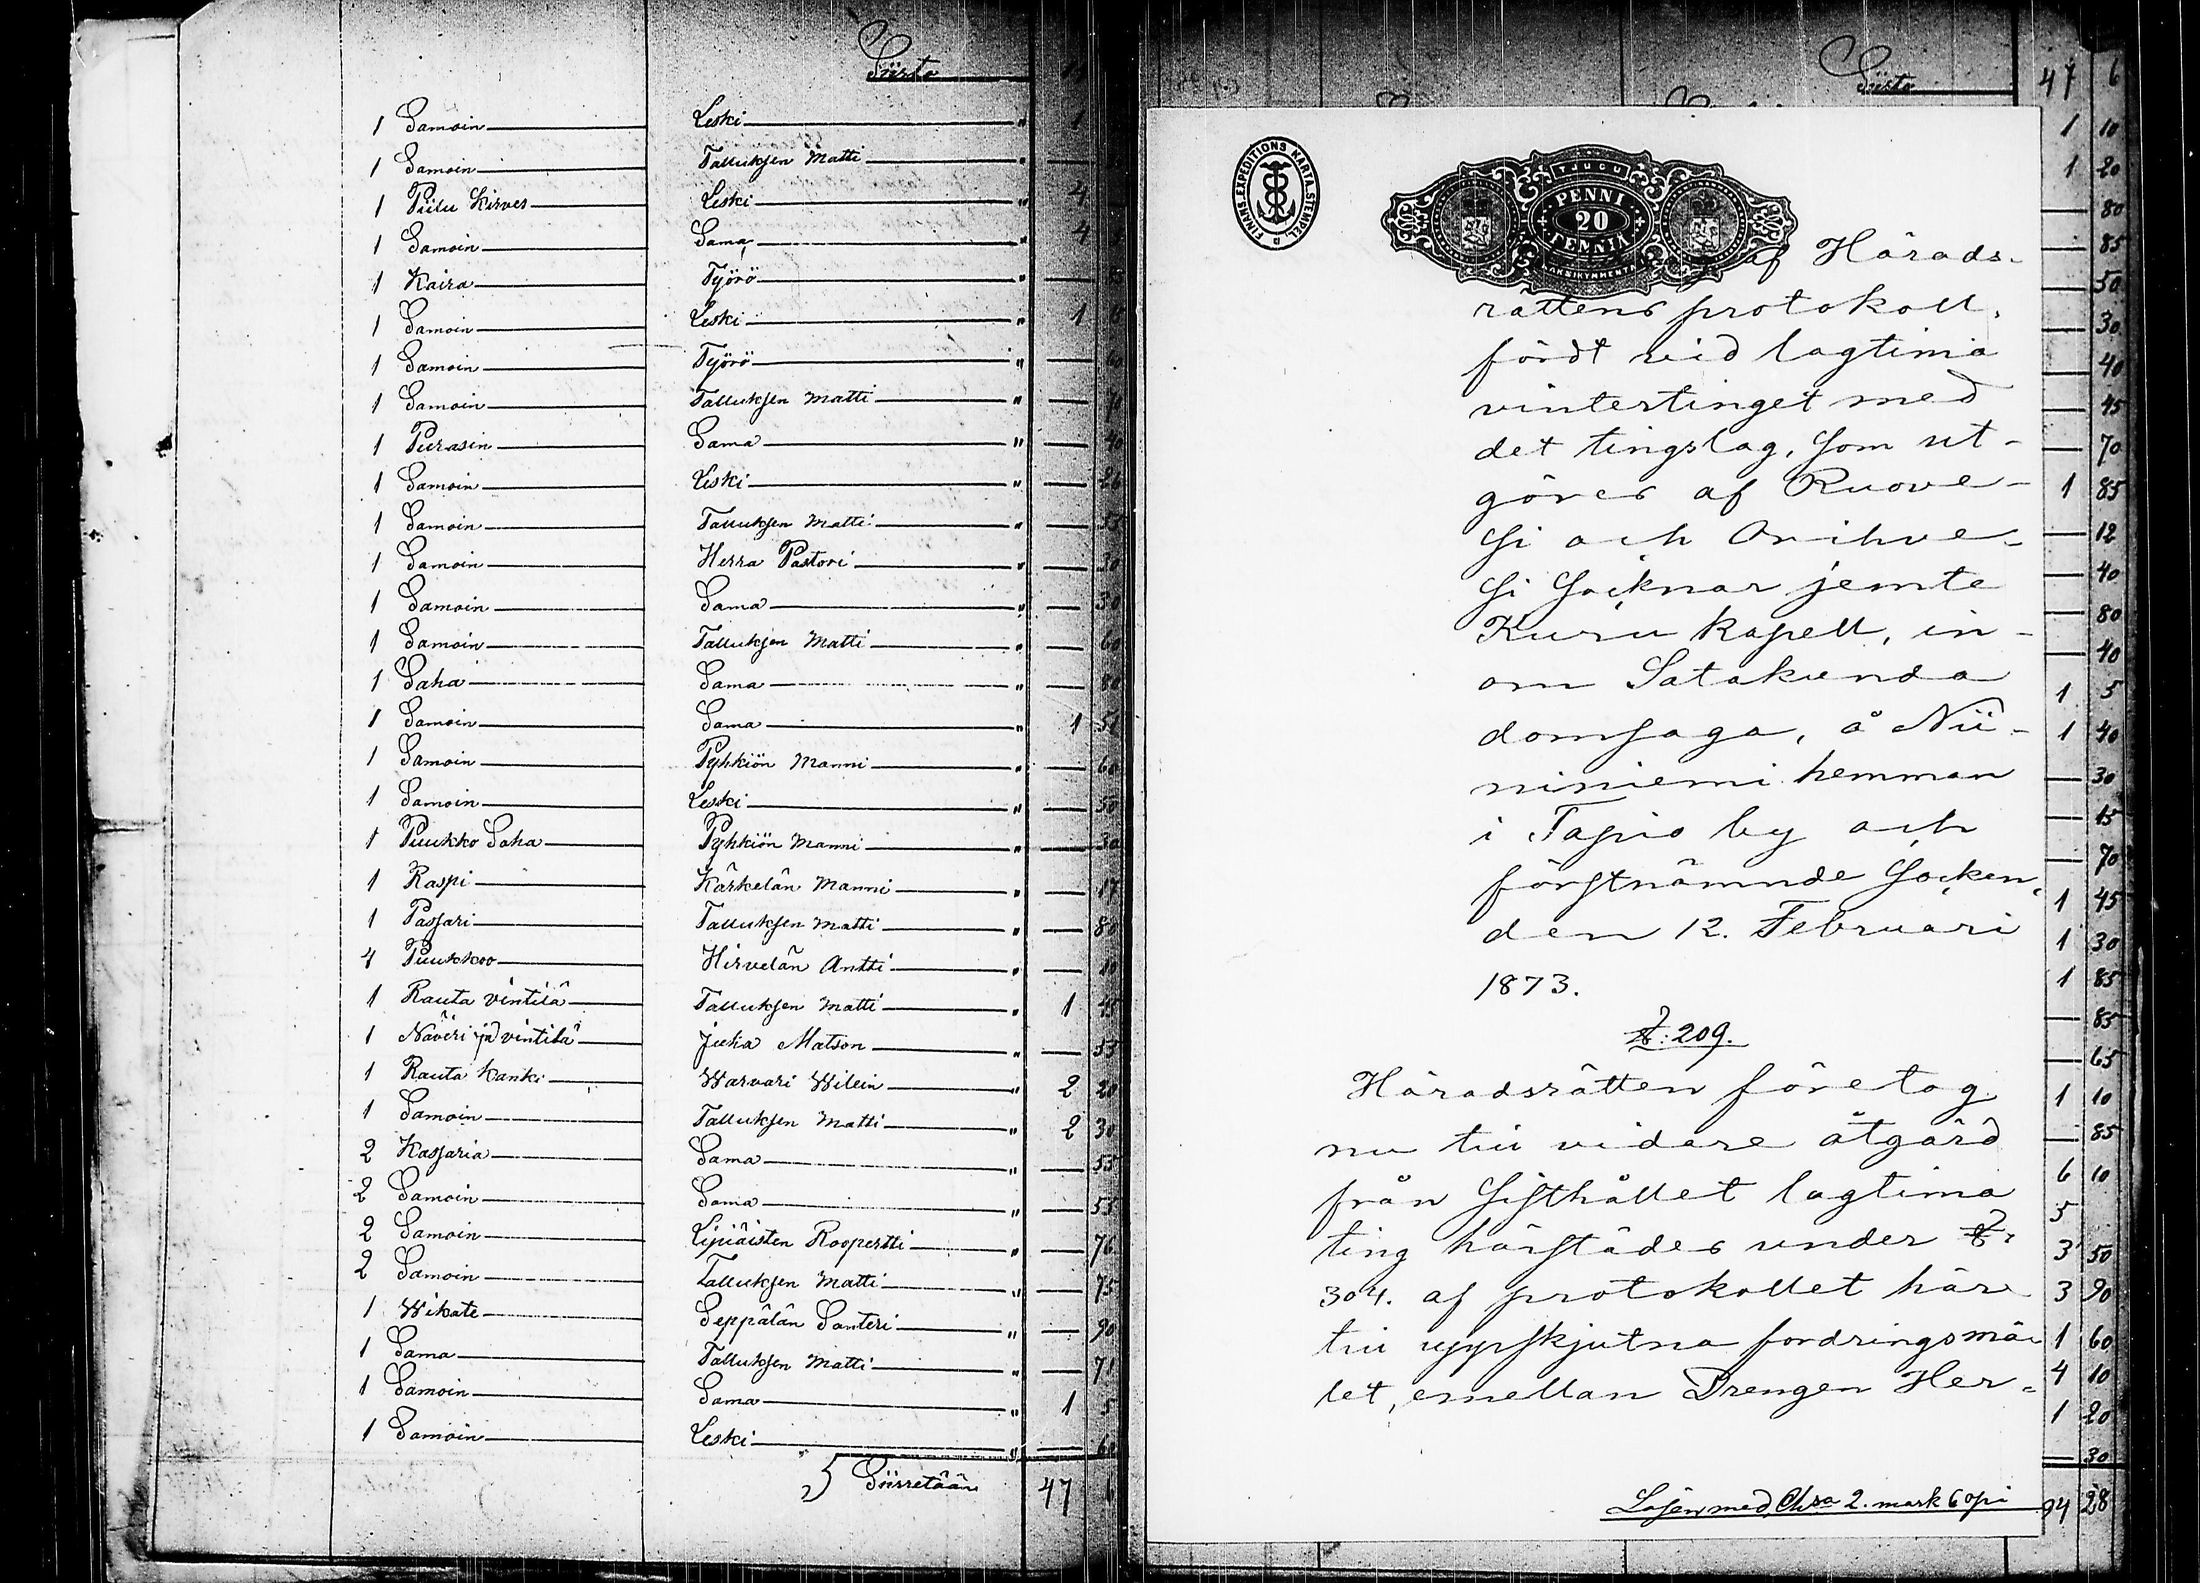 Siirto
1 Samoin Leski " 1
1 Samoin Talluksen Matti " —
1 Piilu Kirves Leski " 4
1 Samoin Sama " 4
1 Kaira Työrö " —
1 Samoin Leski " 1
1 Samoin Työrö " — 60
1 Samoin Talluksen Matti " —
1 Purasin Sama " — 40
1 Samoin Leski " — 26
1 Samoin Talluksen Matti " — 55
1 Samoin Herra Pastori " — 30
1 Samoin Sama " — 30
1 Samoin Talluksen Matti " — 60
1 Saha Sama " — 80
1 Samoin Sama " 1 51
1 Samoin Pyhkiön Manni " — 60
1 Samoin Leski " — 50
1 Puukko Saha Pyhkiön Manni " — 30
1 Raspi Kärkelän Manni " — 17
1 Passari Talluksen Matti " — 80
4 Puukkoo Hirvelän Antti " — 10
1 Rauta vintilä Talluksen Matti " 1 45
1 Näveri ja vintilä Juha Matson " — 55
1 Rauta Kanki Warvari Wilein " 2 20
1 Samoin Talluksen Matti " 2 30
2 Kassaria Sama " — 55
2 Samoin Sama " — 55
2 Samoin Lipiäisten Roopertti " — 76
2 Samoin Talluksen Matti " — 75
1 Wikate Seppälän Santeri " — 90
1 Sama Talluksen Matti " — 71
1 Samoin Sama " 1 5
1 Samoin Leski " — 60
Siirretään 47 6
Siirto 47 6
1 10
1 20
— 80
— 85
— 50
— 30
— 40
— 45
— 70
1 85
— 12
— 40
— 80
— 40
1 5
1 40
— 30
— 15
— 70
1 45
1 30
1 85
— 85
— 65
1 10
— 85
6 10
5
3 50
3 90
1 60
4 10
1 20
— 30
94 28
FINANS.EXPEDITIONS KARTA.STEMPEL.
TJUGU
PENNI
20
PENNIÄ
KAKSIKYMMENTÄ
af Härads-
rättens protokoll,
fördt vid lagtima
vintertinget med
det tingslag, som ut-
göres af Ruove-
si och Orihve-
si Socknar jemte
Kuru kapell, in-
om Satakunda
domsaga, å Nii-
niniemi hemman
i Tapio by och
förstnämnde Socken,
den 12. Februari
1873.
№: 209.
Häradsrätten företog
nu till vidare åtgärd
från sisthållet lagtima
ting härstädes under №:
304. af protokollet här-
till uppskjutna fordringsmå-
let, emellan Drengen Her-
Lösen med Ch:sa 2. mark 60 p:i